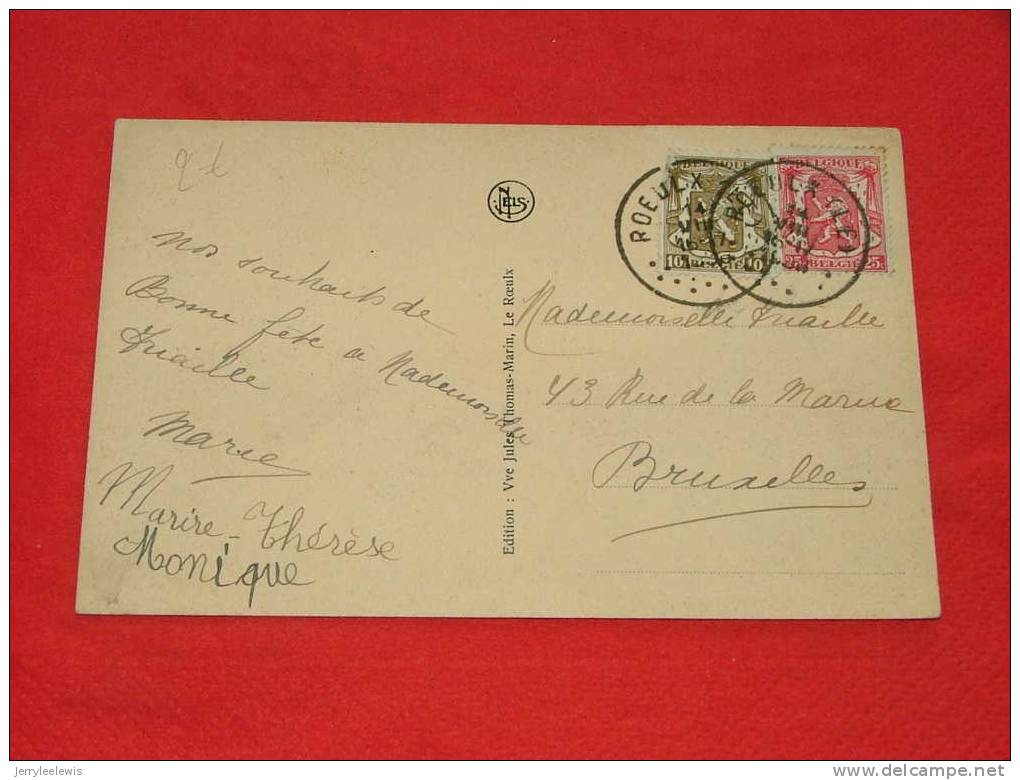 nos souhaits de
Bonne fête à Mademoiselle
Marie
Marire-Thérèse
Monique
NELS
Edition : Vve Jules Thomas-Marin, Le Rœulx
BELGIQUE
10c BELGIE 10c
BELGIQUE
25c BELGIE 25c
ROEULX
ROEULX (LE)
Mademoiselle
43 Rue de la Marne
Bruxelles
jerryleelewis
delcampe.net